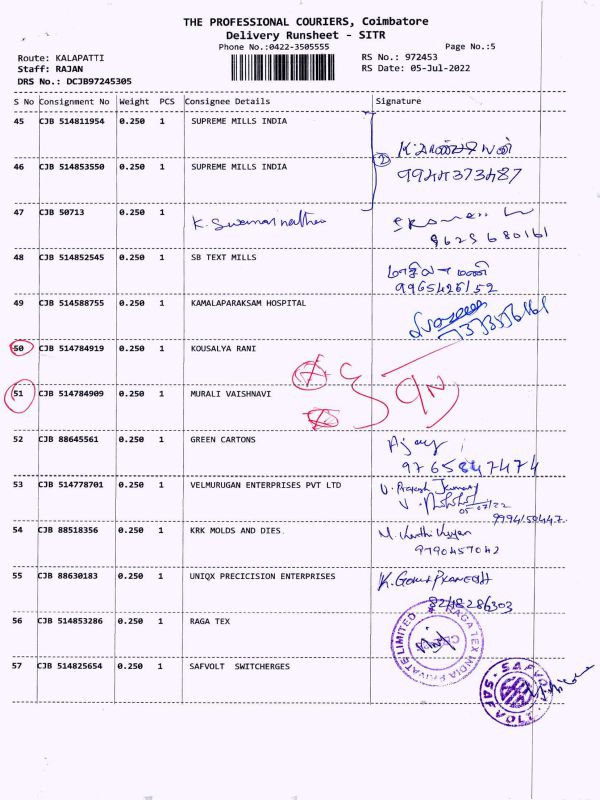 THE PROFESSIONAL COURIERS, Coimbatore
Delivery Runsheet - SITR
Phone No.:0422-3505555 Page No.:5
Route: KALAPATTI RS No.: 972453
Staff: RAJAN RS Date: 05-Jul-2022
DRS No.: DCJB97245305
S No Consignment No Weight PCS Consignee Details Signature
45 CJB 514811954 0.250 1 SUPREME MILLS INDIA
2
46 CJB 514853550 0.250 1 SUPREME MILLS INDIA 9944373487
47 CJB 50713 0.250 1 K. Swaminathan
9629680161
48 CJB 514852545 0.250 1 SB TEXT MILLS
மணி
9965426152
49 CJB 514588755 0.250 1 KAMALAPARAKSAM HOSPITAL
50 CJB 514784919 0.250 1 KOUSALYA RANI
51 CJB 514784909 0.250 1 MURALI VAISHNAVI
52 CJB 88645561 0.250 1 GREEN CARTONS Ajay
9765847474
53 CJB 514778701 0.250 1 VELMURUGAN ENTERPRISES PVT LTD V. Prakash Kumar
05/07/22
54 CJB 88518356 0.250 1 KRK MOLDS AND DIES. M. Karthikeyan
9790457042
55 CJB 88630183 0.250 1 UNIQX PRECICISION ENTERPRISES
8248286303
56 CJB 514853286 0.250 1 RAGA TEX
RAGA TEX INDIA PRIVATE LIMITED
57 CJB 514825654 0.250 1 SAFVOLT SWITCHERGES
SAFVOLT